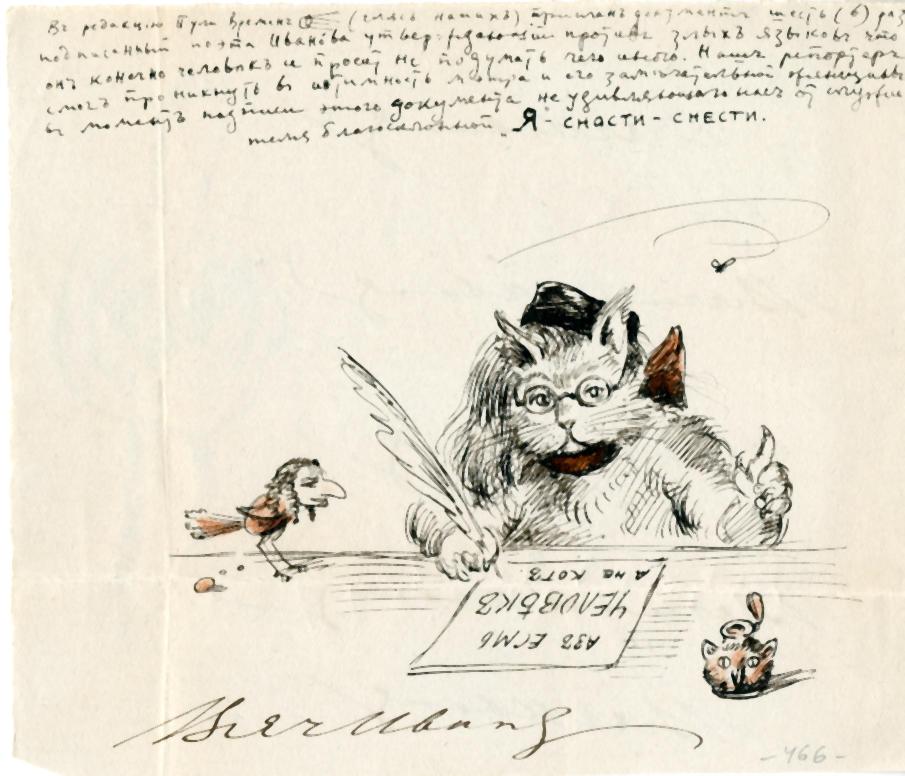 Въ редакцію Пули Времени (глясъ нашихъ) присланъ документъ шесть (6) раз
подписанный поэта Иванова утверждающій противъ злыхъ языковъ что
онъ конечно человѣкъ и проситъ не подумать чего иного. Нашъ репортеръ
смогъ проникнуть въ интимность мэтра и его замѣчательной
въ моментъ подписи этого документа не удивляющаго насъ от
благосклонный „Я - СНАСТИ - СНЕСТИ.
АЗЪ ЕСМЬ
ЧЕЛОВѢКЪ
А НЕ КОТЪ.
Вяч Иванов
-466-